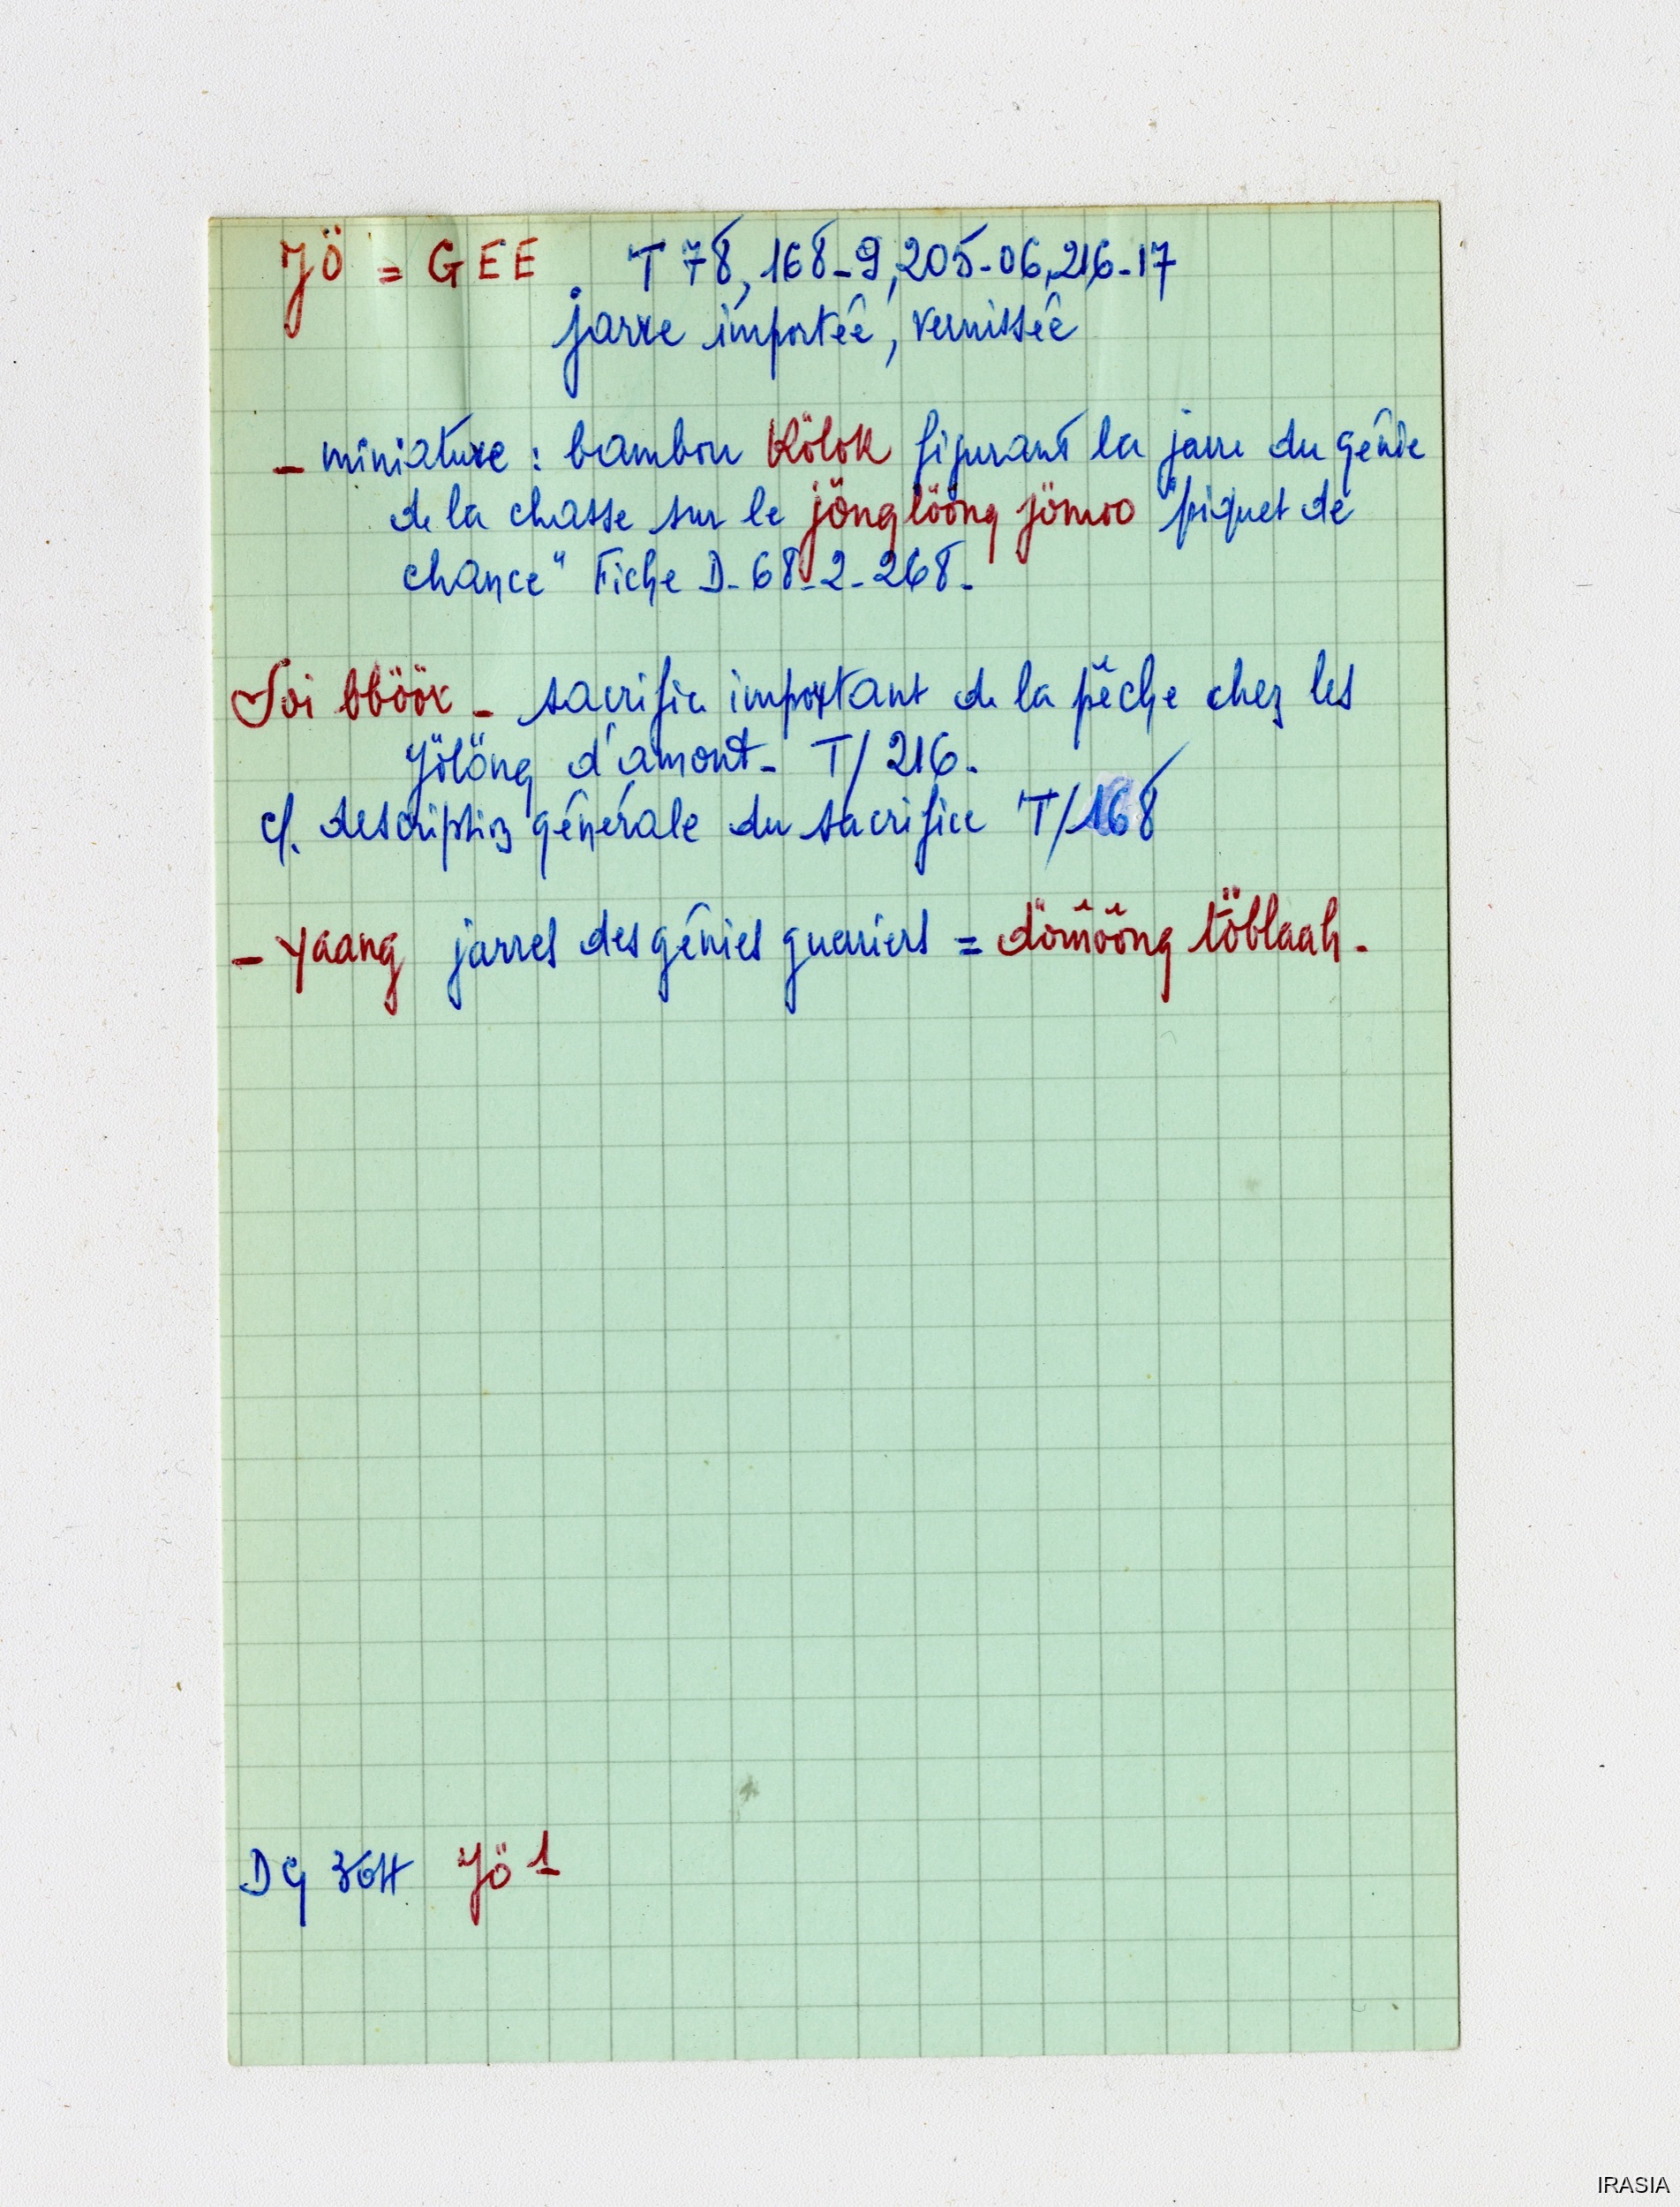 Jö = GEE T 78, 168-9, 205-06, 216-17
jarre importée, vernissée
- miniature : bambou Kölok figurant la jarre du génie
de la chasse sur le jönglööng jömoo "piquet de
chance" Fiche D-68-2-268.
Soi bböök - sacrifice important de la pêche chez les
Jölöng d'amont - T/216.
cf. description générale du sacrifice T/168
- Yaang jarres des génies guerriers = dömööng töblaah.
Jö 1
IRASIA